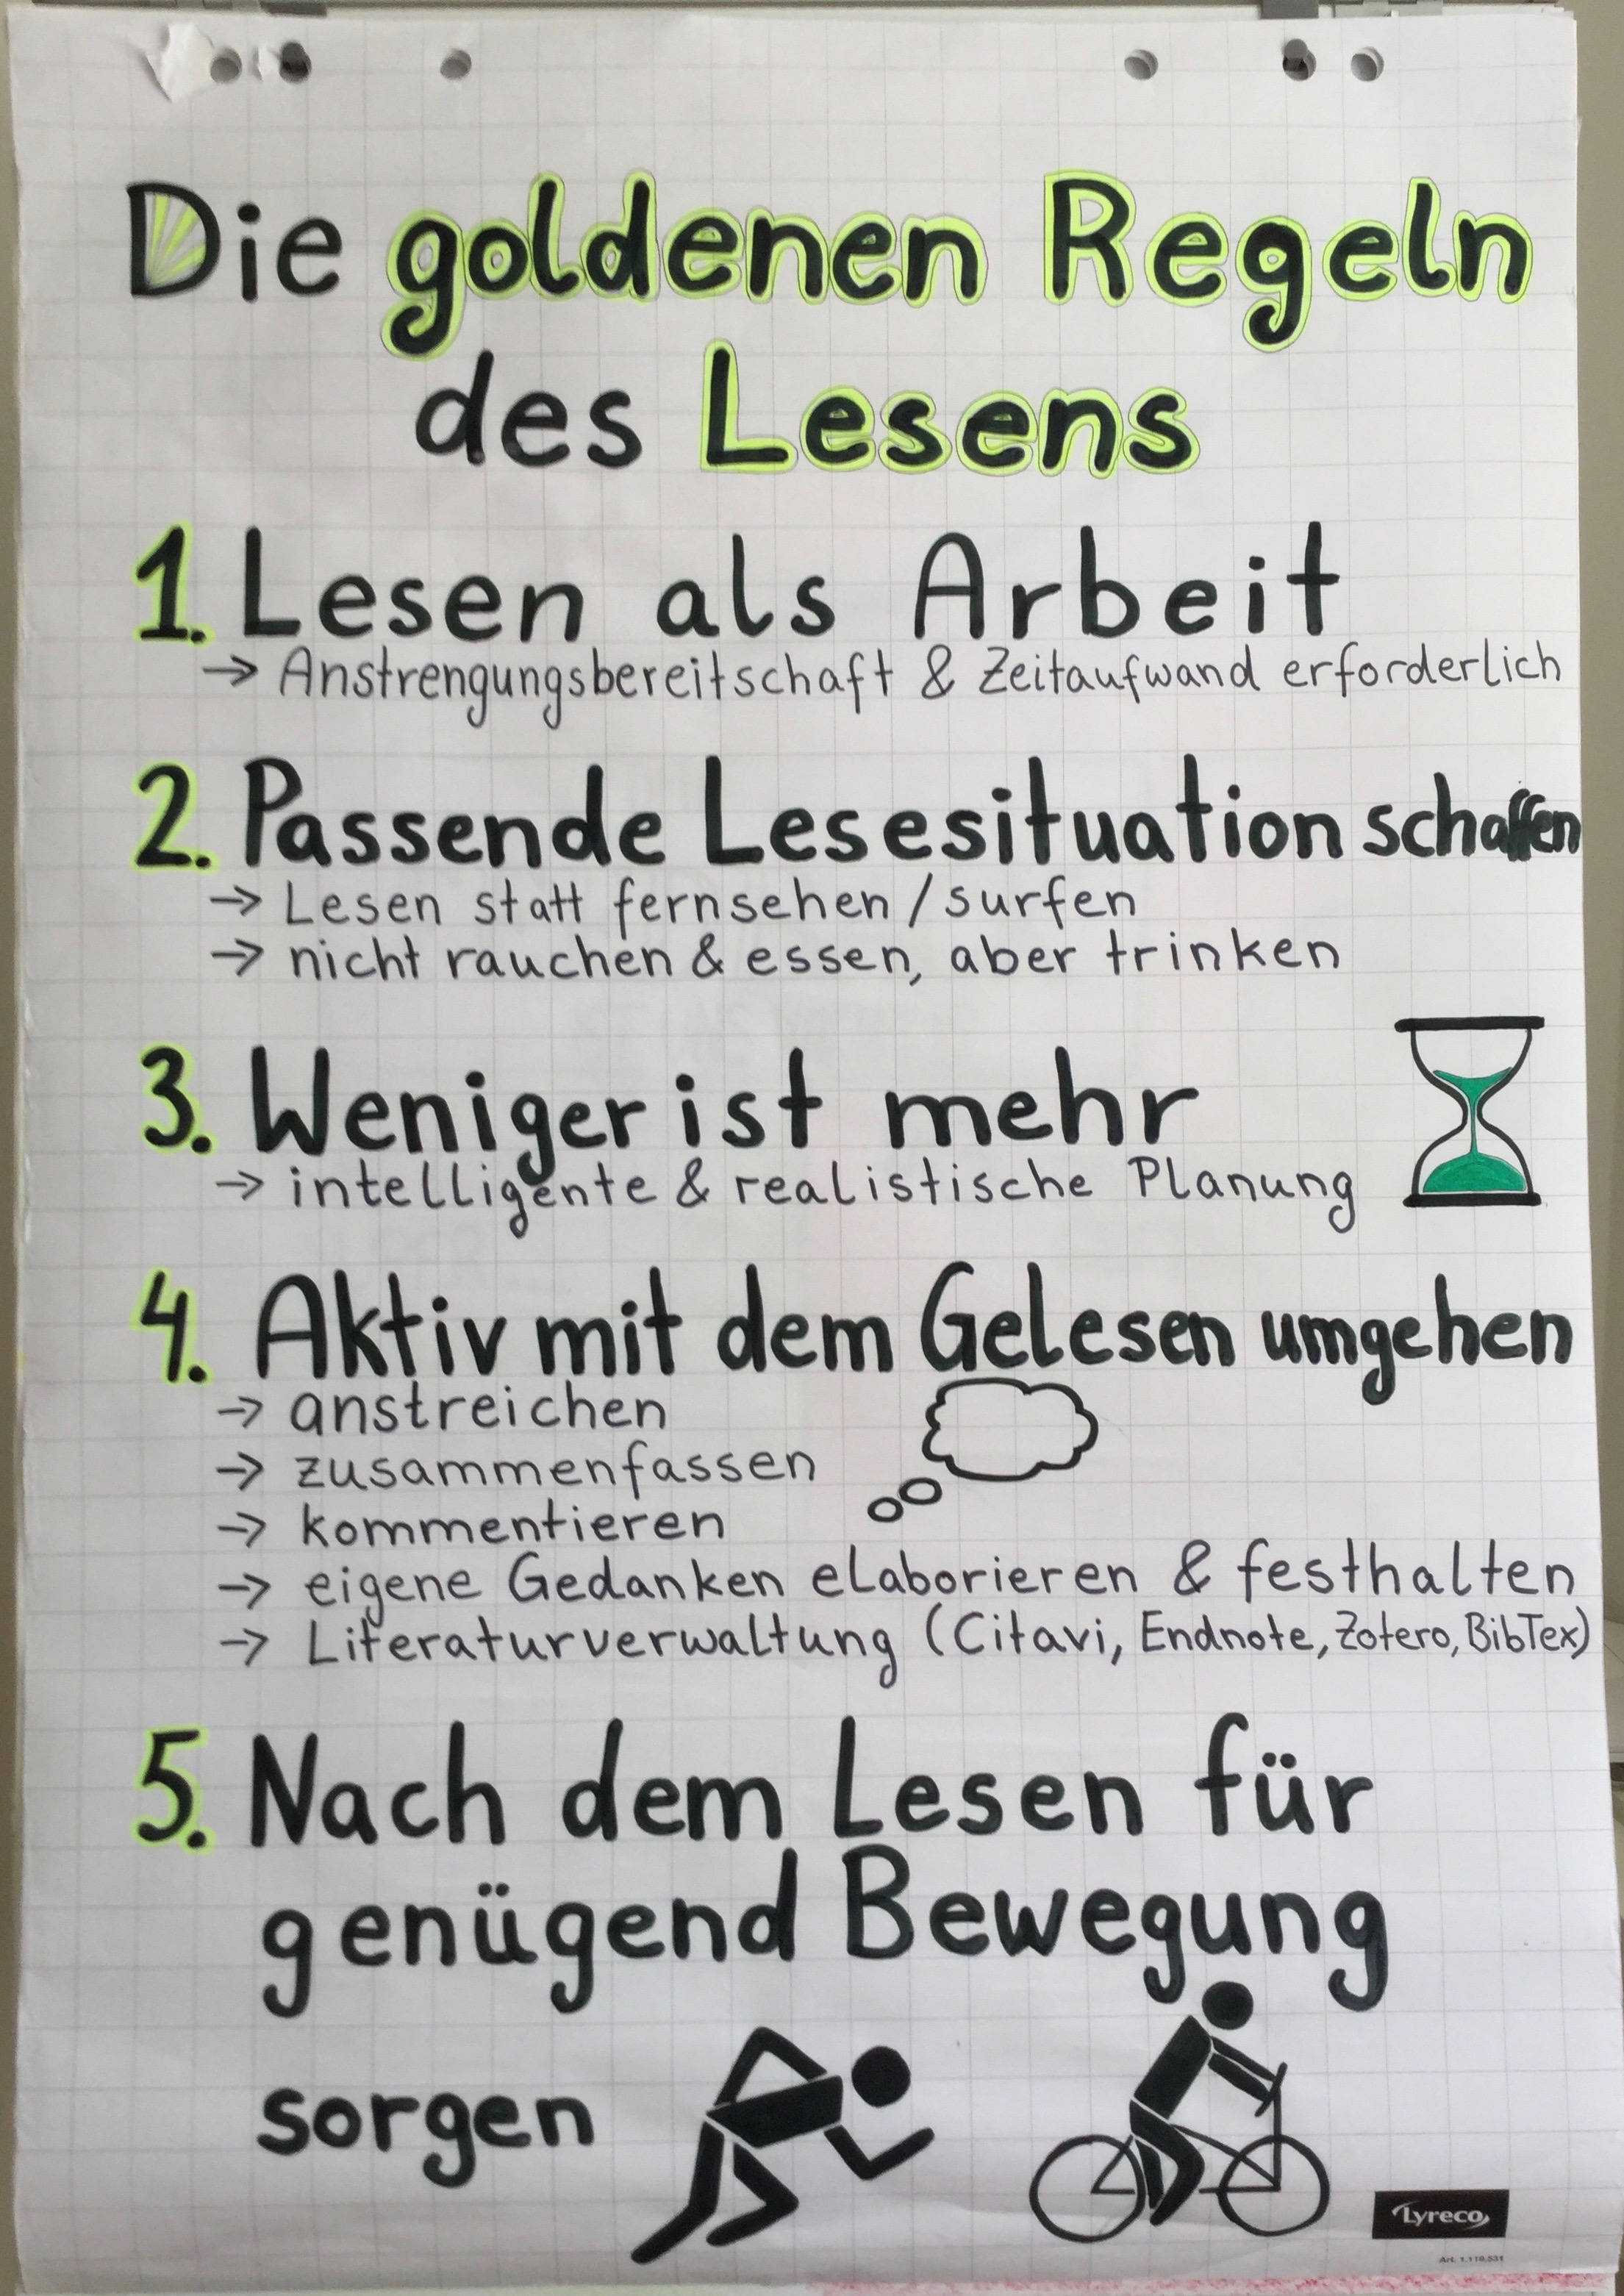 Die goldenen Regeln
des Lesens
1. Lesen als Arbeit
→ Anstrengungsbereitschaft & Zeitaufwand erforderlich
2. Passende Lesesituation schaffen
→ Lesen statt fernsehen/surfen
→ nicht rauchen & essen, aber trinken
3. Weniger ist mehr
→ intelligente & realistische Planung
4. Aktiv mit dem Gelesen umgehen
→ anstreichen
→ zusammenfassen
→ kommentieren
→ eigene Gedanken elaborieren & festhalten
→ Literaturverwaltung (Citavi, Endnote, Zotero, BibTex)
5. Nach dem Lesen für
genügend Bewegung
sorgen
Lyreco
Art. 1.118.531